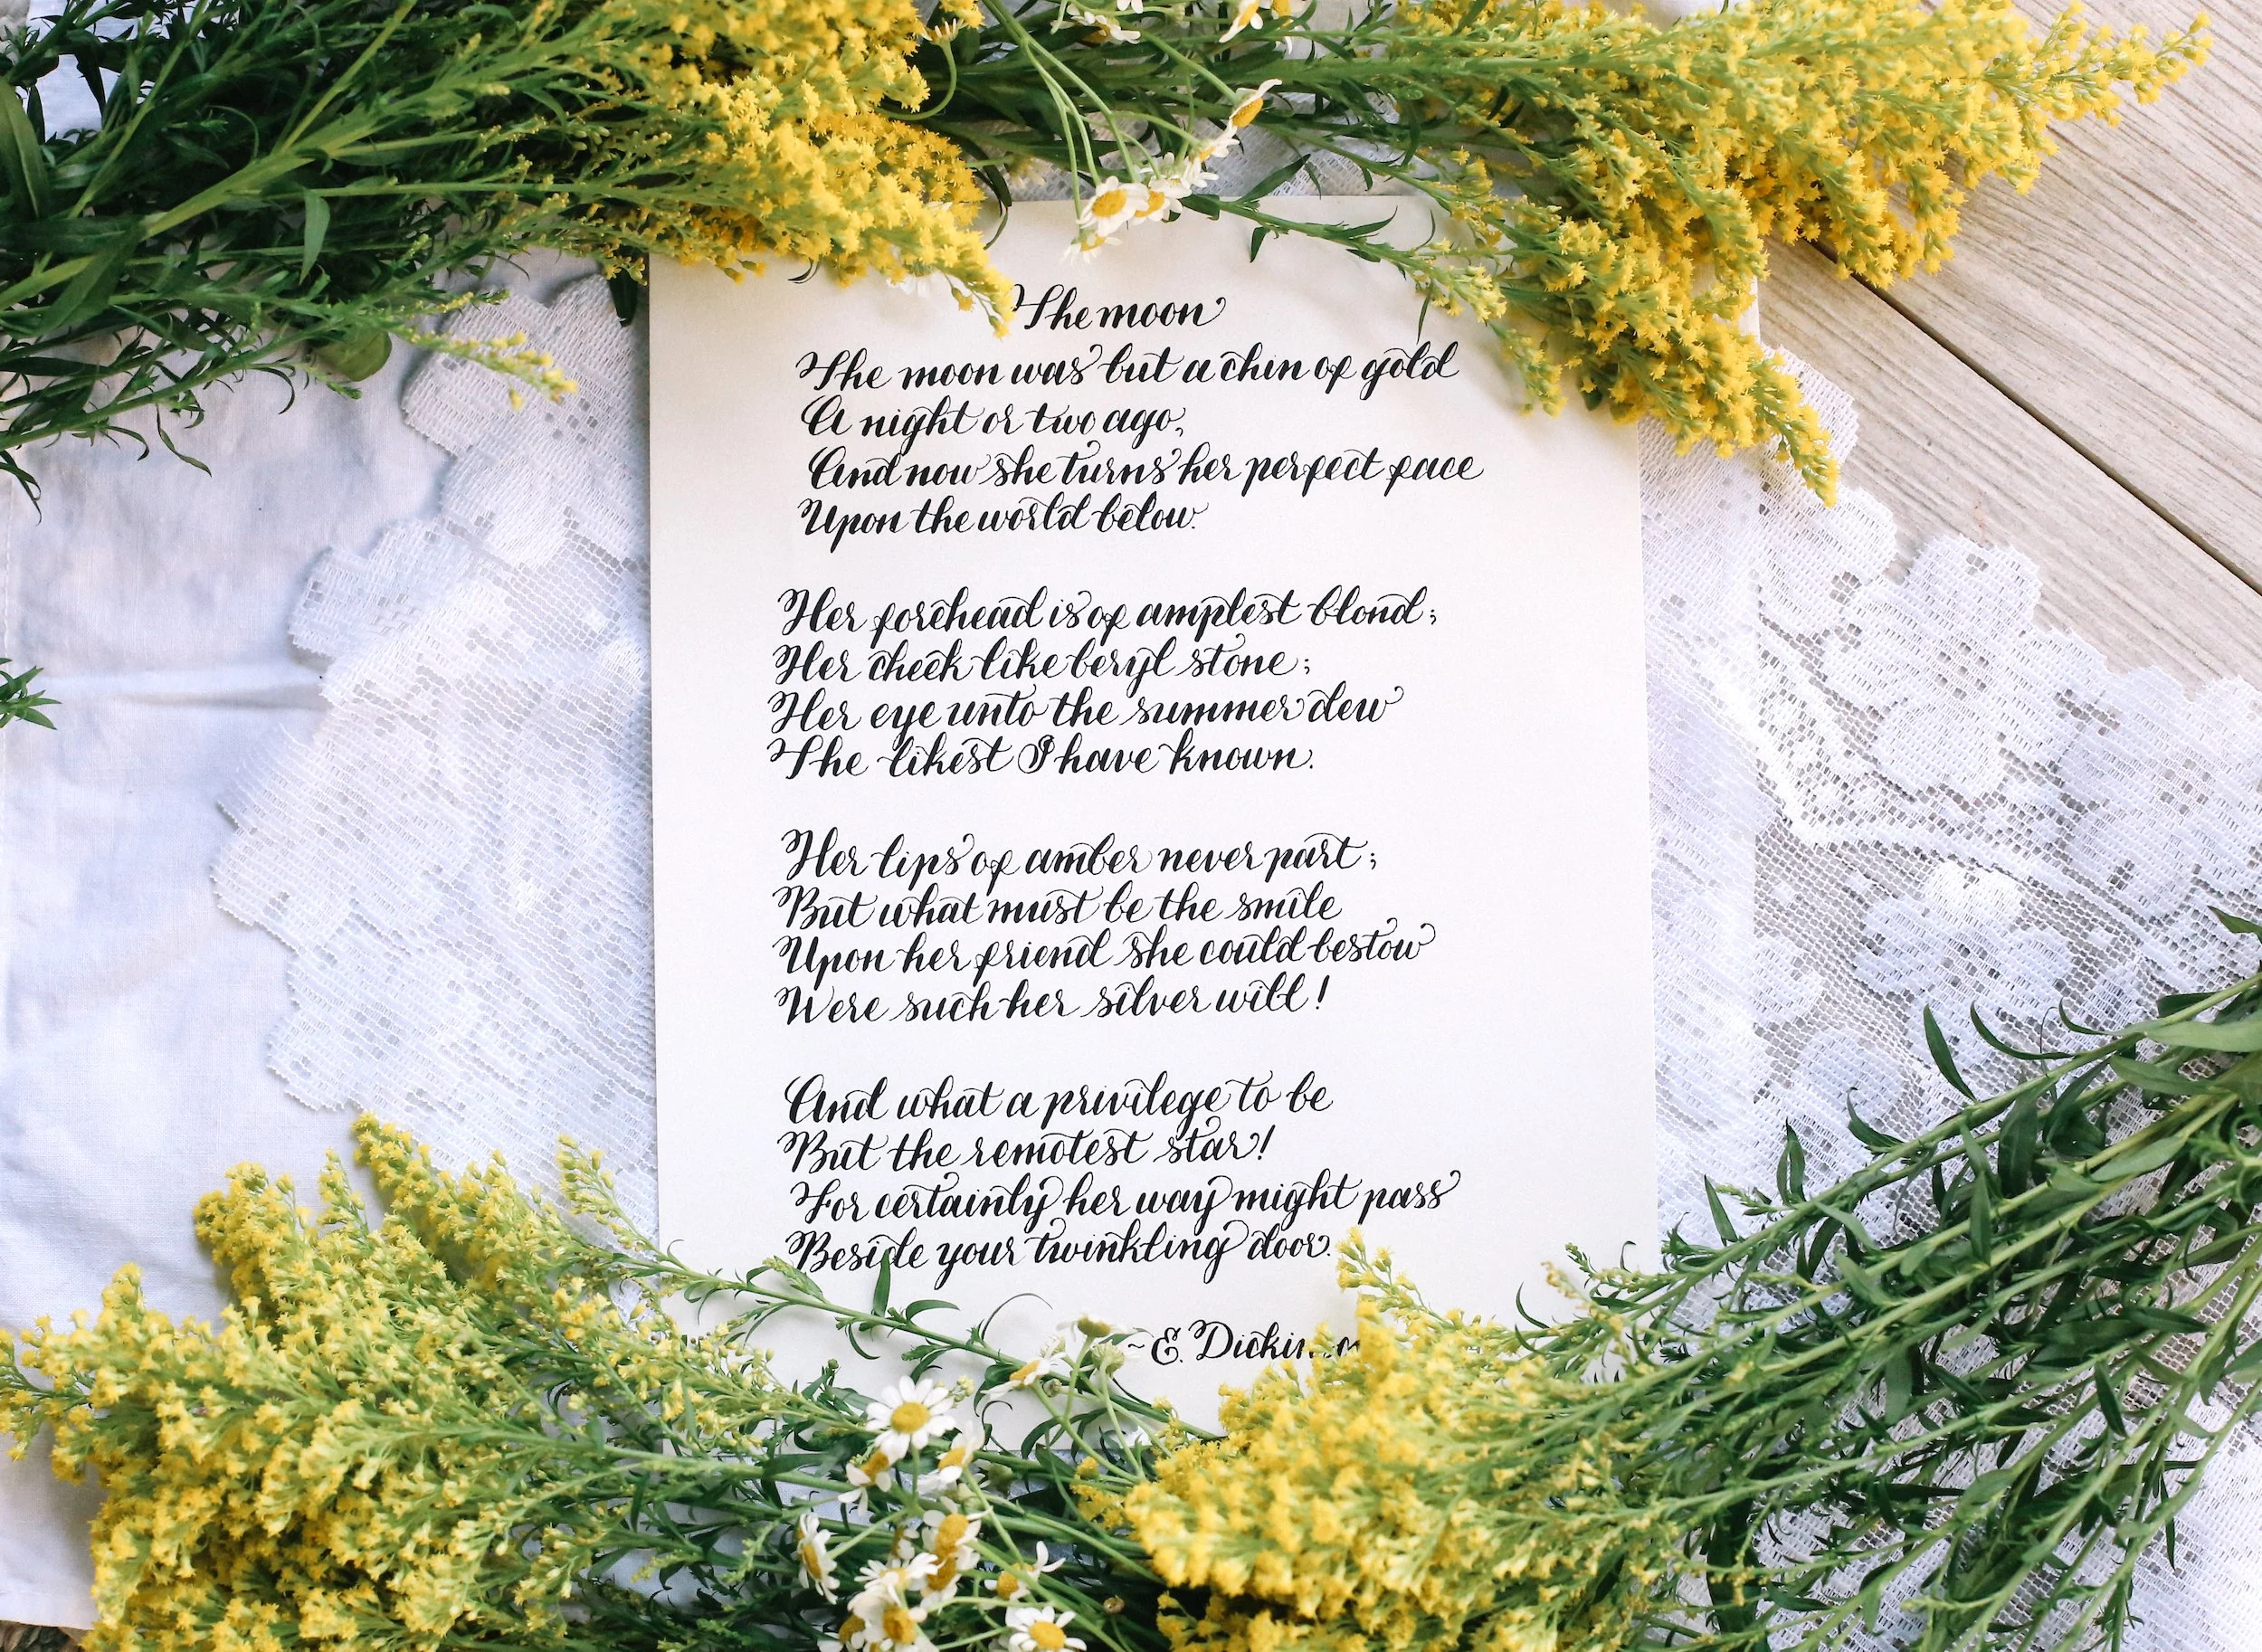 The moon
The moon was but a chin of gold
A night or two ago,
And now she turns her perfect face
Upon the world below.
Her forehead is of amplest blond;
Her cheek like beryl stone;
Her eye unto the summer dew
The likest I have known.
Her lips of amber never part;
But what must be the smile
Upon her friend she could bestow
Were such her silver will!
And what a privilege to be
But the remotest star!
For certainly her way might pass
Beside your twinkling door.
~E. Dickinson